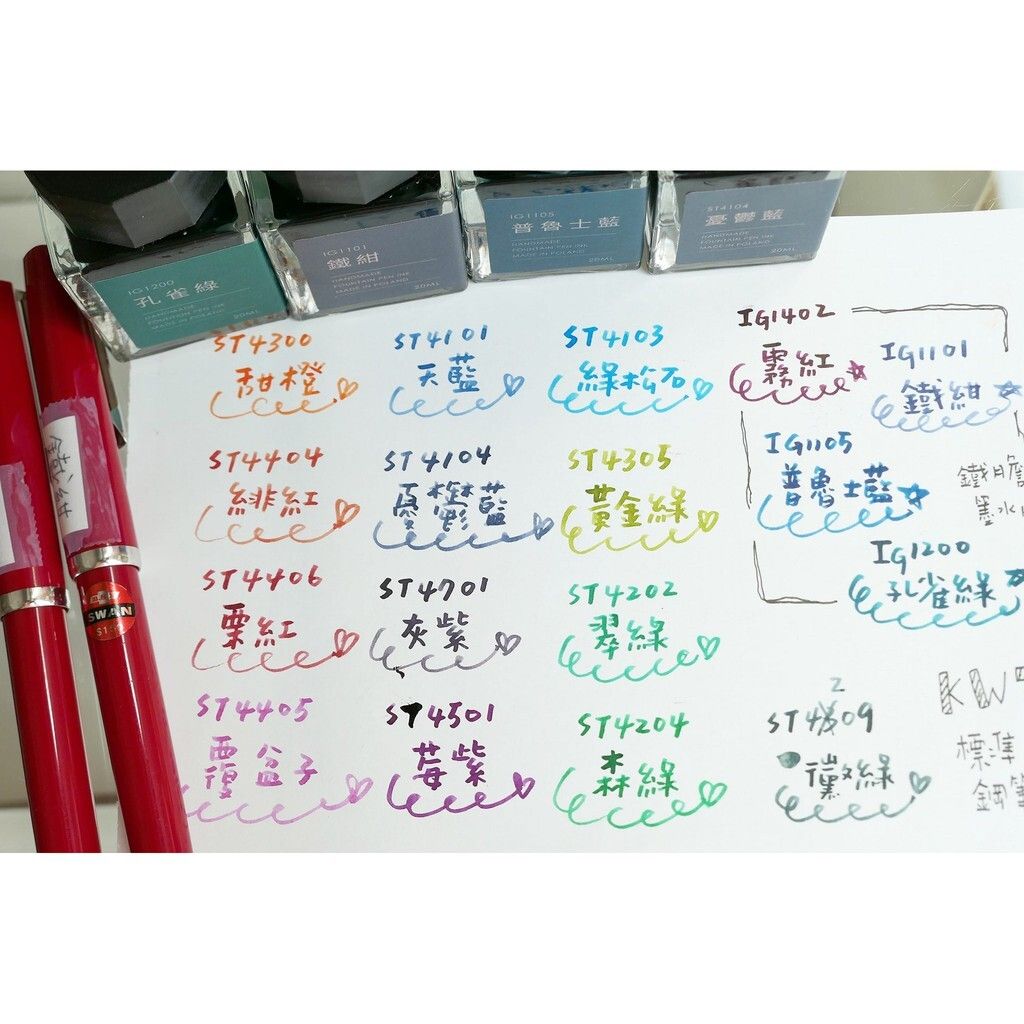 IG1200
孔雀綠
HANDMADE
FOUNTAIN PEN INK
MADE IN POLAND
20ML
IG1101
鐵紺
HANDMADE
FOUNTAIN PEN INK
MADE IN POLAND
20ML
IG1105
普魯士藍
HANDMADE
FOUNTAIN PEN INK
MADE IN POLAND
20ML
ST4104
憂鬱藍
HANDMADE
FOUNTAIN PEN INK
MADE IN POLAND
20ML
SWAN
ST4300
甜橙
ST4101
天藍
ST4103
綠松石
IG1402
霧紅
IG1101
鐵紺
ST4404
緋紅
ST4104
憂鬱藍
ST4305
黃金綠
IG1105
普魯士藍
鐵膽
墨水
ST4406
栗紅
ST4701
灰紫
ST4202
翠綠
IG1200
孔雀綠
ST4405
覆盆子
ST4501
莓紫
ST4204
森綠
2
ST4309
黴綠
KW
標準
鋼筆